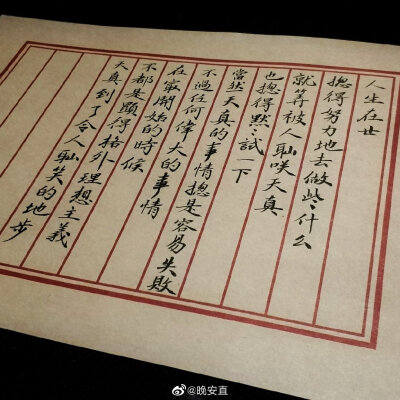 人生在世
總得努力地去做些什么
就算被人耻咲天真
也總得默々試一下
當然天真的事情總是容易失敗
不過任何偉大的事情
在最開始的時候
不都是顯得格外理想主義
天真到了令人耻笑的地步
@晚安直